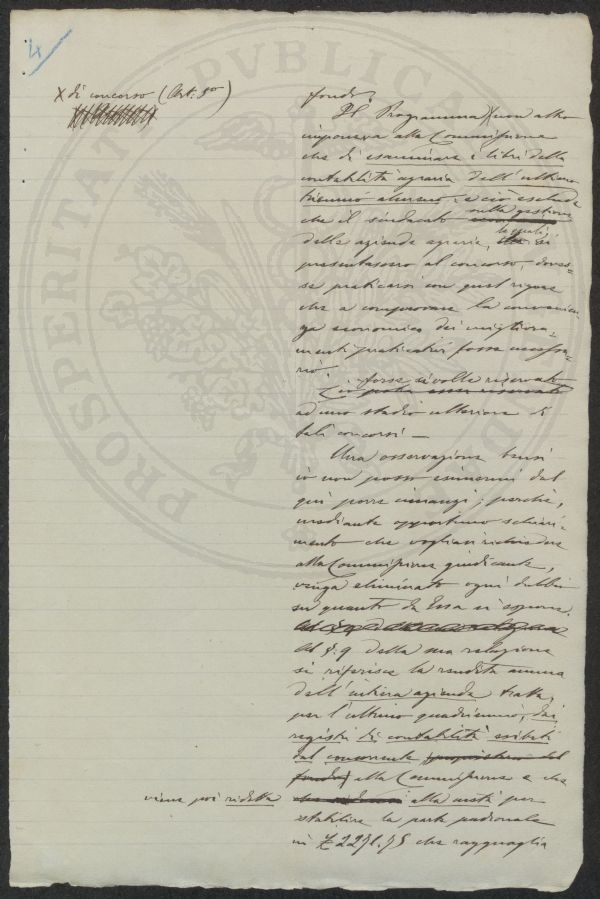 4
X di concorso (Art: 5º)
fondo.
Il Programma X non altro
imponeva alla Commissione
che di esaminare i libri della
contabilità agraria dell'ultimo
triennio almeno, e ciò esclude
che il sindacato sulla gestione
delle aziende agrarie, le quali si
presentassero al concorso, doves=
se praticarsi con quel rigore
che a comprovare la convenien=
za economica dei migliora=
menti praticativi fosse necessa=
rio.
forse si volle riservato
ad uno studio ulteriore di
tali concorsi —
Una osservazione bensì
io non posso esimermi dal
qui porre innanzi; perchè,
mediante opportuno schiari=
mento che vogliasi richiedere
alla Commissione giudicante,
venga eliminato ogni dubbio
su quanto da Essa si espone.
Al §. 9 della sua relazione
si riferisce la rendita annua
dell'intiera azienda tratta,
per l'ultimo quadriennio, dai
registri di contabilità esibiti
dal concorrente (proprietario del
fondo) alla Commissione e che
viene poi ridotta
alla metà per
stabilire la parte padronale
in £ 2291.95 che ragguaglia
PROSPERITATI PVBLICAE